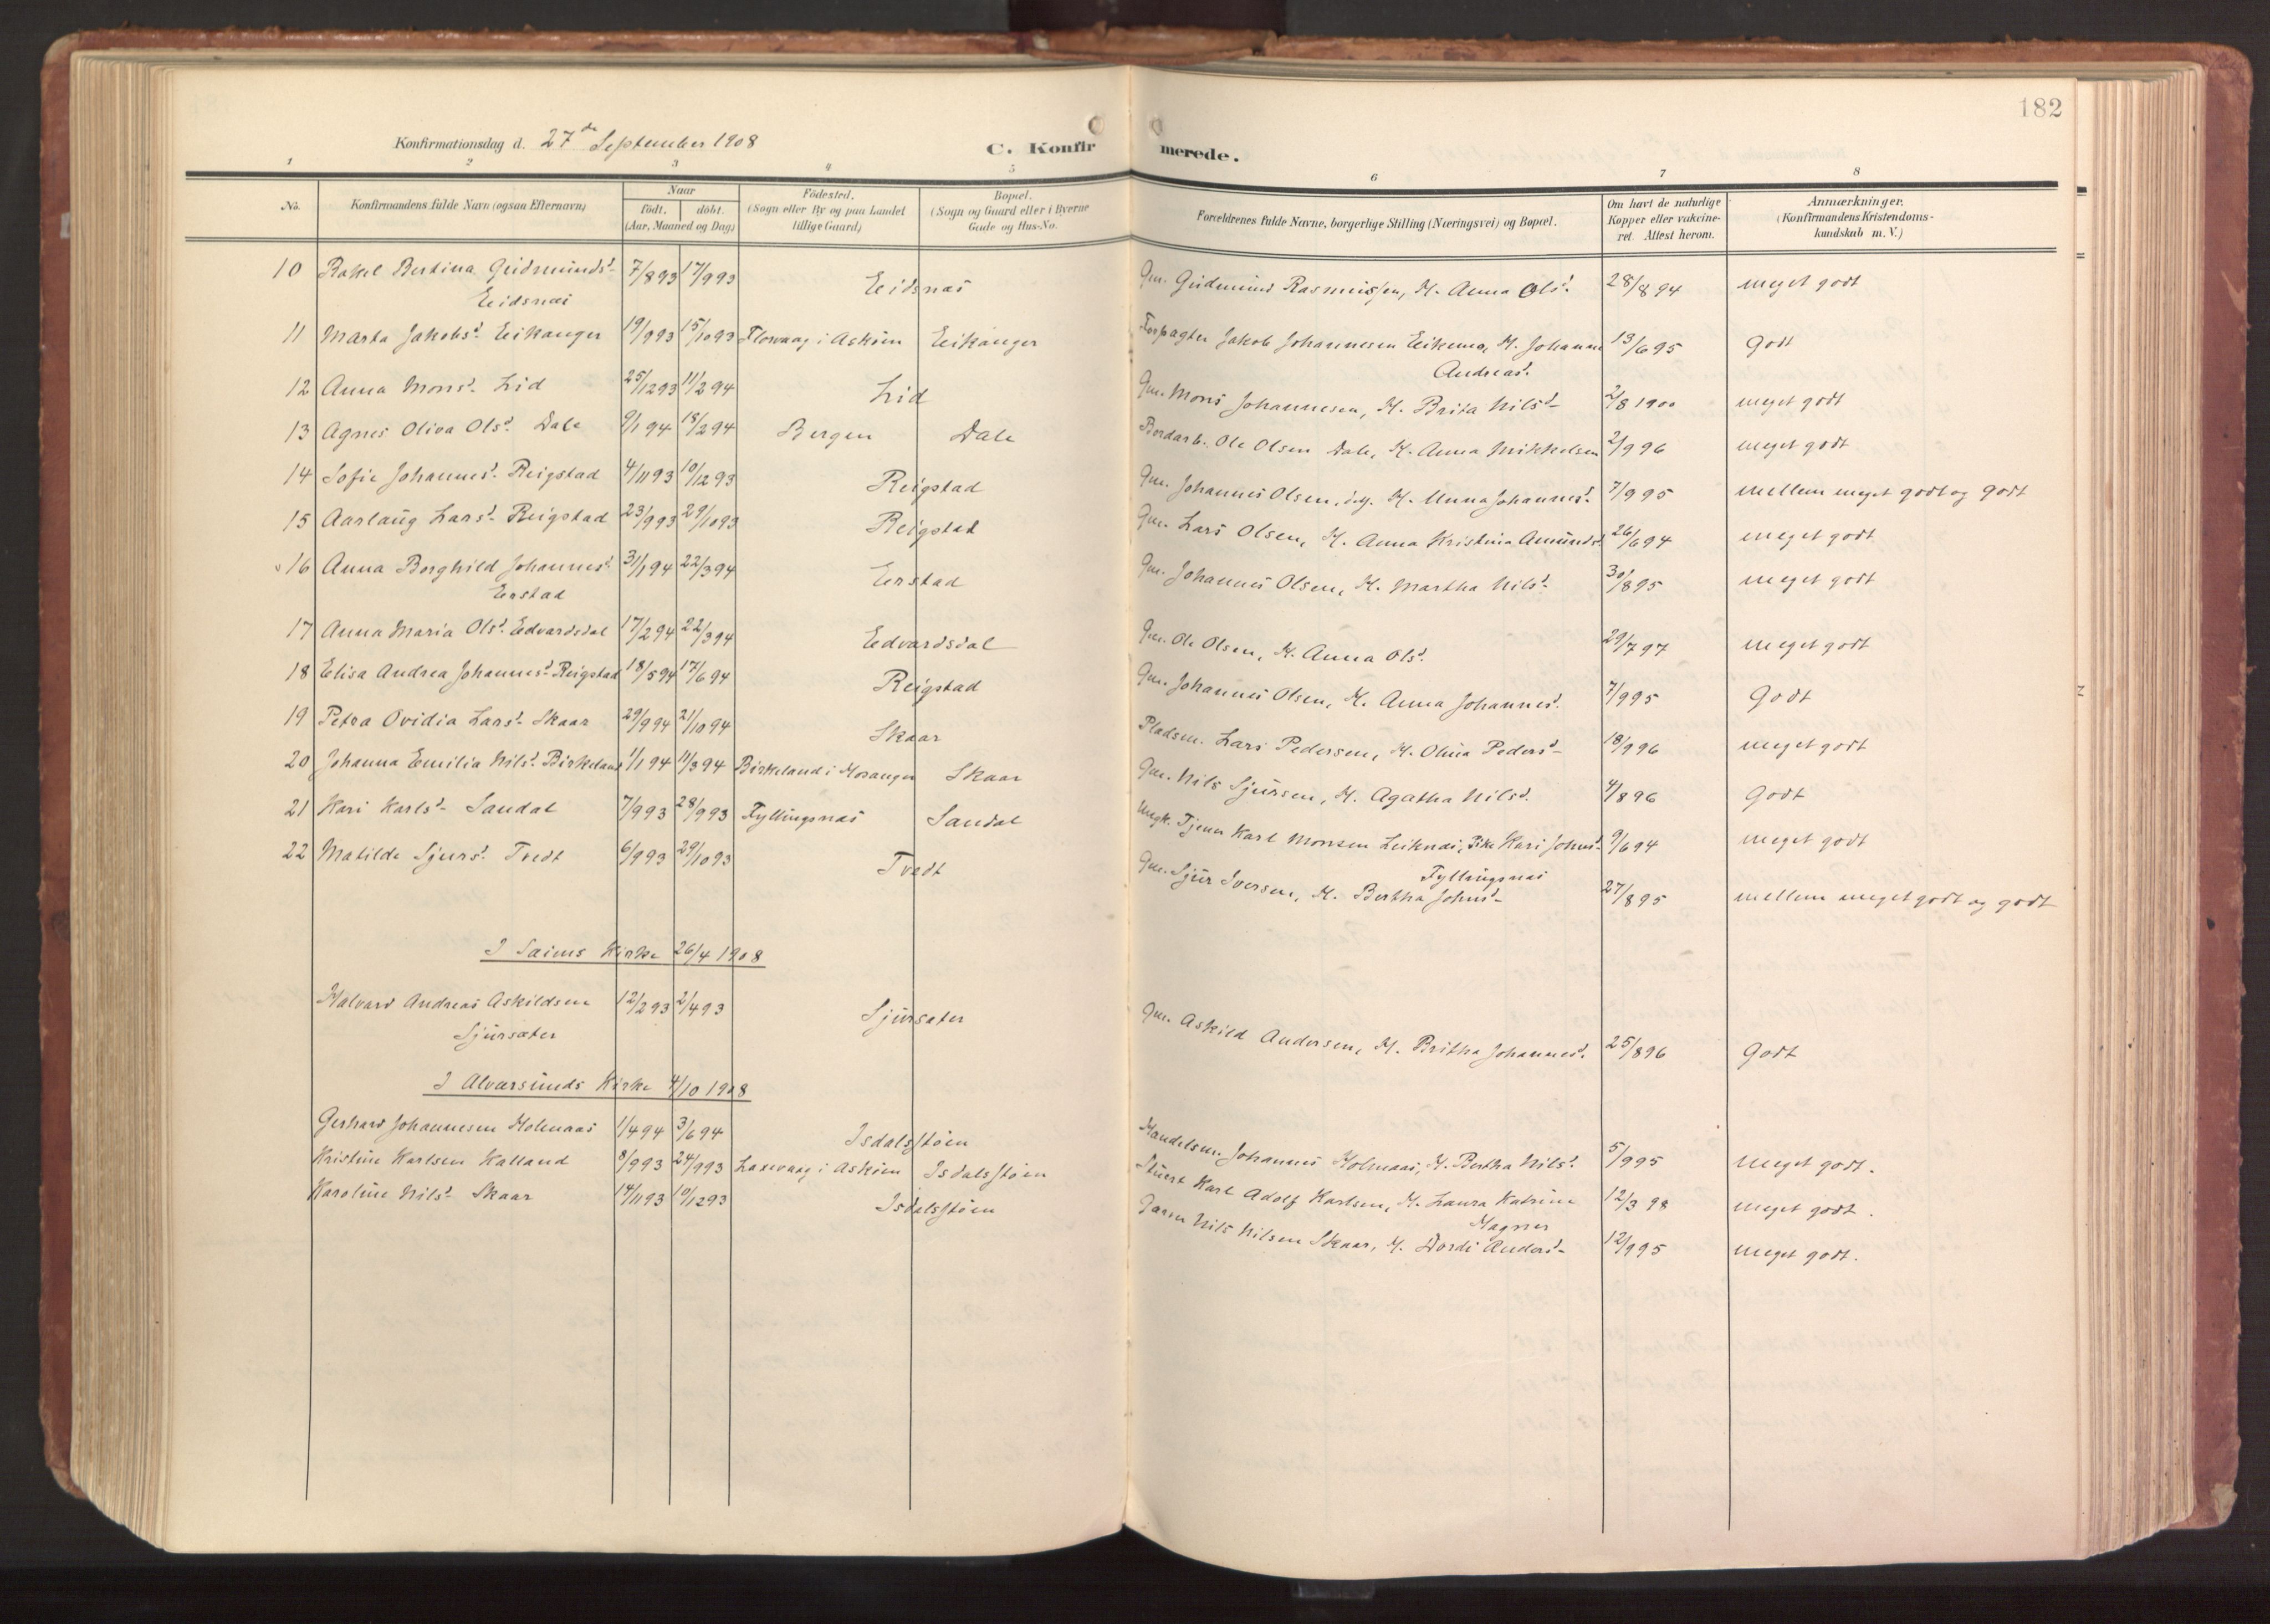 182
Konfirmationsdag d. 27de September 1908
C. Konfirmerede.
1 2 3 4 5 6 7 8
No. Konfirmandens fulde Navn (ogsaa Efternavn) Naar født. døbt. (Aar, Maaned og Dag) Fødested. (Sogn eller By og paa Landet tillige Gaard) Bopæl. (Sogn og Gaard eller i Byerne Gade og Hus-No. Forældrenes fulde Navne, borgerlige Stilling (Næringsvei) og Bopæl. Om havt de naturlige Kopper eller vakcineret. Attest herom. Anmærkninger. (Konfirmandens Kristendomskundskab m. V.)
10 Rakel Bertina Gudmundsd. 7/8 93 17/9 93 Eidsnæs Gm. Gudmund Rasmussen, H. Anna Olsd. 28/8 94 meget godt
Eidsnæs
11 Marta Jakobsd. Eikanger 19/9 93 15/10 93 Florvaag i Askøen Eikanger Forpagter Jakob Johannesen Eikemo, H. Johanne 13/6 95 Godt
Andreasd.
12 Anna Monsd. Lid 25/12 93 11/2 94 Lid Gm. Mons Johannesen, H. Brita Nilsd. 2/8 1900 meget godt
13 Agnes Oliva Olsd. Dale 9/1 94 18/2 94 Bergen Dale Bordarb. Ole Olsen Dale, H. Anna Mikkelsen 2/9 96 meget godt
14 Sofie Johannesd. Reigstad 4/11 93 10/12 93 Reigstad Gm. Johannes Olsen, H. Anna Johannesd. 7/9 95 mellem meget godt og godt
15 Aaslaug Larsd. Reigstad 23/9 93 29/10 93 Reigstad Gm. Lars Olsen, H. Anna Kristina Amundsd. 26/6 94 meget godt
16 Anna Borghild Johannesd. 31/1 94 22/3 94 Erstad Gm. Johannes Olsen, H. Martha Nilsd. 30/8 95 meget godt
Erstad
17 Anna Maria Olsd. Edvardsdal 17/2 94 22/3 94 Edvardsdal Gm. Ole Olsen, H. Anna Olsd. 29/7 97 meget godt
18 Elisa Andrea Johannesd. Reigstad 18/5 94 17/6 94 Reigstad Gm. Johannes Olsen, H. Anna Johannesd. 7/9 95 Godt
19 Petra Ovidia Larsd. Skaar 29/9 94 21/10 94 Skaar Pladsm. Lars Pedersen, H. Olina Pedersd. 18/9 96 meget godt
20 Johanna Emilia Nilsd. Birkeland 1/1 94 11/3 94 Birkeland i Hosanger Skaar Gm. Nils Sjursen, H. Agatha Nilsd. 4/8 96 Godt
21 Kari Karlsd. Sandal 7/9 93 28/9 93 Fyllingsnæs Sandal Ungk. Tjener Karl Monsen Leiknæs, Pike Kari Johnsd. 9/6 94 meget godt
Fyllingsnæs
22 Matilde Sjursd. Tvedt 6/9 93 29/10 93 Tvedt Gm. Sjur Iversen, H. Bertha Johnsd. 27/8 95 mellem meget godt og godt
I Sæims Kirke 26/4 1908
Halvard Andreas Askildsen 12/2 93 2/4 93 Sjursæter Gm. Askild Andersen, H. Britha Johannesd. 25/8 96 Godt
Sjursæter
I Alversunds Kirke 4/10 1908
Gerhard Johannesen Holmaas 1/4 94 3/6 94 Isdalsstøen Handelsm. Johannes Holmaas, H. Bertha Nilsd. 5/9 95 meget godt.
Kristine Karlsen Kalland 8/9 93 24/9 93 Laxevaag i Askøen Isdalsstøen Stuert Karl Adolf Karlsen, H. Laura Katrine 12/3 98 meget godt.
Magnes
Karoline Nilsd. Skaar 14/11 93 10/12 93 Isdalsstøen Garver Nils Nilsen Skaar, H. Dordi Andersd. 12/9 95 meget godt.